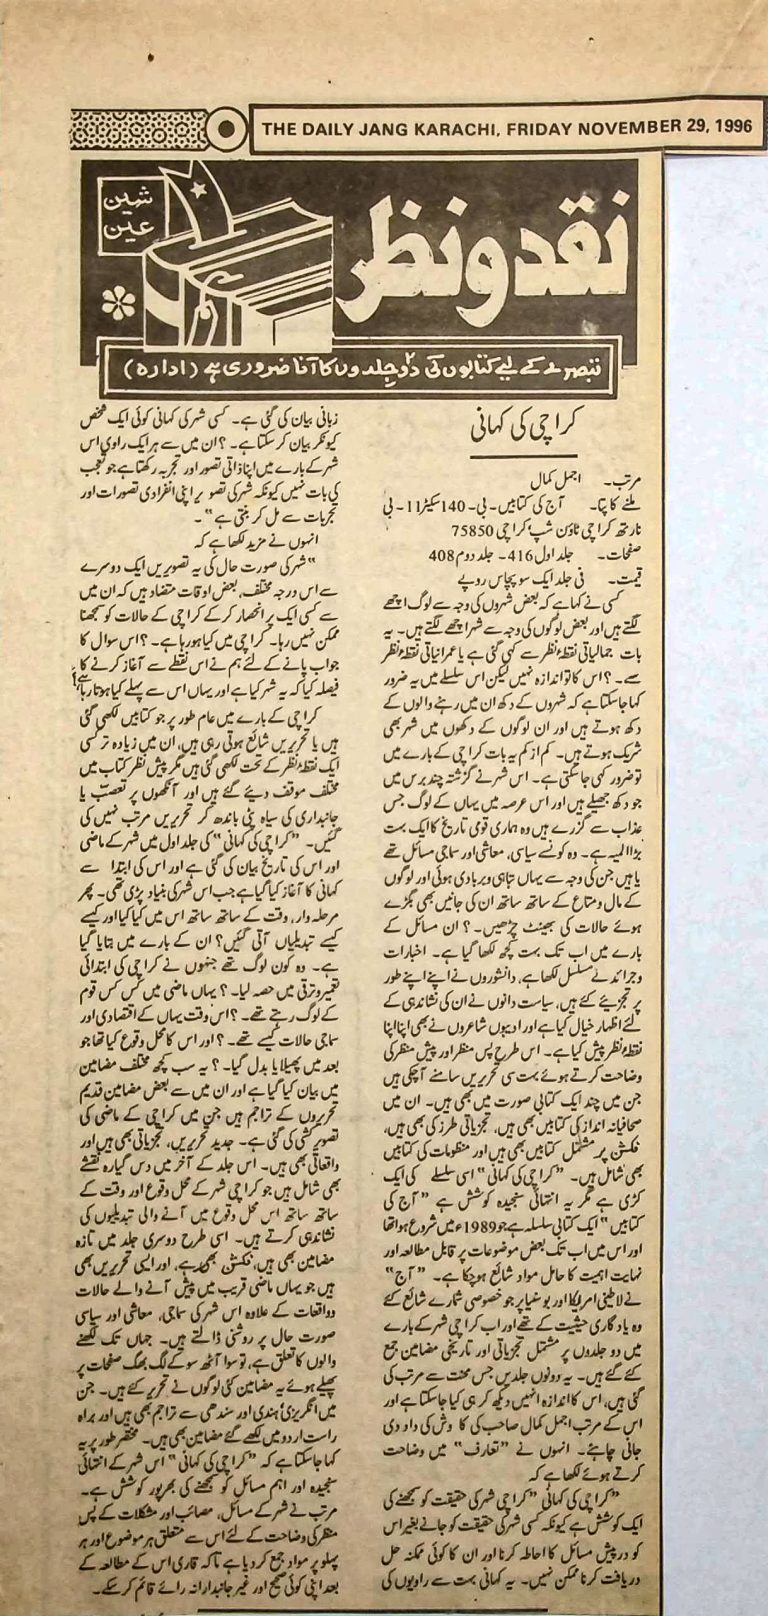 THE DAILY JANG KARACHI, FRIDAY NOVEMBER 29, 1996
شین
عین
نقد و نظر
تبصرے کے لیے کتابوں کی دو جلدوں کا آنا ضروری ہے (ادارہ)
کراچی کی کہانی
مرتب۔ اجمل کمال
ملنے کا پتا۔ آج کی کتابیں۔ بی۔ 140 سیکٹر 11۔ بی
نارتھ کراچی ٹاؤن شپ کراچی 75850
صفحات۔ جلد اول 416۔ جلد دوم 408
قیمت۔ فی جلد ایک سو پچاس روپے
کسی نے کہا ہے کہ بعض شہروں کی وجہ سے لوگ اچھے
لگتے ہیں اور بعض لوگوں کی وجہ سے شہر اچھے لگتے ہیں۔ یہ
بات جمالیاتی نقطۂ نظر سے کہی گئی ہے یا عمرانیاتی نقطۂ نظر
سے۔؟ اس کا تو اندازہ نہیں لیکن اس سلسلے میں یہ ضرور
کہا جا سکتا ہے کہ شہروں کے دکھ ان میں رہنے والوں کے
دکھ ہوتے ہیں اور ان لوگوں کے دکھوں میں شہر بھی
شریک ہوتے ہیں۔ کم از کم یہ بات کراچی کے بارے میں
تو ضرور کہی جا سکتی ہے۔ اس شہر نے گزشتہ چند برس میں
جو دکھ جھیلے ہیں اور اس عرصہ میں یہاں کے لوگ جس
عذاب سے گزرے ہیں وہ ہماری قومی تاریخ کا ایک بہت
بڑا المیہ ہے۔ وہ کونسے سیاسی، معاشی اور سماجی مسائل تھے
یا ہیں جن کی وجہ سے یہاں تباہی و بربادی ہوئی اور لوگوں
کے مال و متاع کے ساتھ ساتھ ان کی جانیں بھی بگڑے
ہوئے حالات کی بھینٹ چڑھیں۔؟ ان مسائل کے
بارے میں اب تک بہت کچھ لکھا گیا ہے۔ اخبارات
و جرائد نے مسلسل لکھا ہے، دانشوروں نے اپنے اپنے طور
پر تجزیئے کئے ہیں، سیاست دانوں نے ان کی نشاندہی کے
لئے اظہار خیال کیا ہے اور ادیبوں شاعروں نے بھی اپنا اپنا
نقطۂ نظر پیش کیا ہے۔ اس طرح پس منظر اور پیش منظر کی
وضاحت کرتے ہوئے بہت سی تحریریں سامنے آ چکی ہیں
جن میں چند ایک کتابی صورت میں بھی ہیں۔ ان میں
صحافیانہ انداز کی کتابیں بھی ہیں، تجزیاتی طرز کی بھی ہیں،
فکشن پر مشتمل کتابیں بھی ہیں اور منظومات کی کتابیں
بھی شامل ہیں۔ "کراچی کی کہانی" اسی سلسلے کی ایک
کڑی ہے مگر یہ انتہائی سنجیدہ کوشش ہے "آج کی
کتابیں" ایک کتابی سلسلہ ہے جو 1989ء میں شروع ہوا تھا
اور اس میں اب تک بعض موضوعات پر قابل مطالعہ اور
نہایت اہمیت کا حامل مواد شائع ہو چکا ہے۔ "آج"
نے لاطینی امریکا اور بوسنیا پر جو خصوصی شمارے شائع کئے
وہ یادگاری حیثیت کے تھے اور اب کراچی شہر کے بارے
میں دو جلدوں پر مشتمل تجزیاتی اور تاریخی مضامین جمع
کئے گئے ہیں۔ یہ دونوں جلدیں جس محنت سے مرتب کی
گئی ہیں، اس کا اندازہ انہیں دیکھ کر ہی کیا جا سکتا ہے اور
اس کے مرتب اجمل کمال صاحب کی کاوش کی داد دی
جانی چاہئے۔ انہوں نے "تعارف" میں وضاحت
کرتے ہوئے لکھا ہے کہ
"کراچی کی کہانی" کراچی شہر کی حقیقت کو سمجھنے کی
ایک کوشش ہے کیونکہ کسی شہر کی حقیقت کو جانے بغیر اس
کو درپیش مسائل کا احاطہ کرنا اور ان کا کوئی ممکنہ حل
دریافت کرنا ممکن نہیں۔ یہ کہانی بہت سے راویوں کی
زبانی بیان کی گئی ہے۔ کسی شہر کی کہانی کوئی ایک شخص
کیونکر بیان کر سکتا ہے۔؟ ان میں سے ہر ایک راوی اس
شہر کے بارے میں اپنا ذاتی تصور اور تجربہ رکھتا ہے جو تعجب
کی بات نہیں کیونکہ شہر کی تصویر اپنی انفرادی تصورات اور
تجربات سے مل کر بنتی ہے"۔
انہوں نے مزید لکھا ہے کہ
"شہر کی صورت حال کی یہ تصویریں ایک دوسرے
سے اس درجہ مختلف، بعض اوقات متضاد ہیں کہ ان میں
سے کسی ایک پر انحصار کر کے کراچی کے حالات کو سمجھنا
ممکن نہیں رہا۔ کراچی میں کیا ہو رہا ہے۔؟ اس سوال کا
جواب پانے کے لئے ہم نے اس نقطے سے آغاز کرنے کا
فیصلہ کیا کہ یہ شہر کیا ہے اور یہاں اس سے پہلے کیا ہوتا رہا ہے؟
کراچی کے بارے میں عام طور پر جو کتابیں لکھی گئی
ہیں یا تحریریں شائع ہوتی رہی ہیں، ان میں زیادہ تر کسی
ایک نقطۂ نظر کے تحت لکھی گئی ہیں مگر پیش نظر کتاب میں
مختلف موقف دیئے گئے ہیں اور آنکھوں پر تعصب یا
جانبداری کی سیاہ پٹی باندھ کر تحریریں مرتب نہیں کی
گئیں۔ "کراچی کی کہانی" کی جلد اول میں شہر کے ماضی
اور اس کی تاریخ بیان کی گئی ہے اور اس کی ابتدا سے
کہانی کا آغاز کیا گیا ہے جب اس شہر کی بنیاد پڑی تھی۔ پھر
مرحلہ وار، وقت کے ساتھ ساتھ اس میں کیا کیا اور کیسے
کیسے تبدیلیاں آتی گئیں؟ ان کے بارے میں بتایا گیا
ہے۔ وہ کون لوگ تھے جنہوں نے کراچی کی ابتدائی
تعمیر و ترقی میں حصہ لیا۔؟ یہاں ماضی میں کس کس قوم
کے لوگ رہتے تھے۔؟ اس وقت یہاں کے اقتصادی اور
سماجی حالات کیسے تھے۔؟ اور اس کا محل وقوع کیا تھا جو
بعد میں پھیلا یا بدل گیا۔؟ یہ سب کچھ مختلف مضامین
میں بیان کیا گیا ہے اور ان میں سے بعض مضامین قدیم
تحریروں کے تراجم ہیں جن میں کراچی کے ماضی کی
تصویر کشی کی گئی ہے۔ جدید تحریریں، تجزیاتی بھی ہیں اور
واقعاتی بھی ہیں۔ اس جلد کے آخر میں دس گیارہ نقشے
بھی شامل ہیں جو کراچی شہر کے محل وقوع اور وقت کے
ساتھ ساتھ اس محل وقوع میں آنے والی تبدیلیوں کی
نشاندہی کرتے ہیں۔ اسی طرح دوسری جلد میں تازہ
مضامین بھی ہیں، فکشن بھی ہے، اور ایسی تحریریں بھی
ہیں جو یہاں ماضی قریب میں پیش آنے والے حالات
و واقعات کے علاوہ اس شہر کی سماجی، معاشی اور سیاسی
صورت حال پر روشنی ڈالتے ہیں۔ جہاں تک لکھنے
والوں کا تعلق ہے، تو سوا آٹھ سو کے لگ بھگ صفحات پر
پھیلے ہوئے یہ مضامین کئی لوگوں نے تحریر کئے ہیں۔ جن
میں انگریزی، ہندی اور سندھی سے تراجم بھی ہیں اور براہ
راست اردو میں لکھے گئے مضامین بھی ہیں۔ مختصر طور پر یہ
کہا جا سکتا ہے کہ "کراچی کی کہانی" اس شہر کے انتہائی
سنجیدہ اور اہم مسائل کو سمجھنے کی بھرپور کوشش ہے۔
مرتب نے شہر کے مسائل، مصائب اور مشکلات کے پس
منظر کی وضاحت کے لئے اس سے متعلق ہر موضوع اور ہر
پہلو پر مواد جمع کر دیا ہے تاکہ قاری اس کے مطالعہ کے
بعد اپنی کوئی صحیح اور غیر جانبدارانہ رائے قائم کر سکے۔